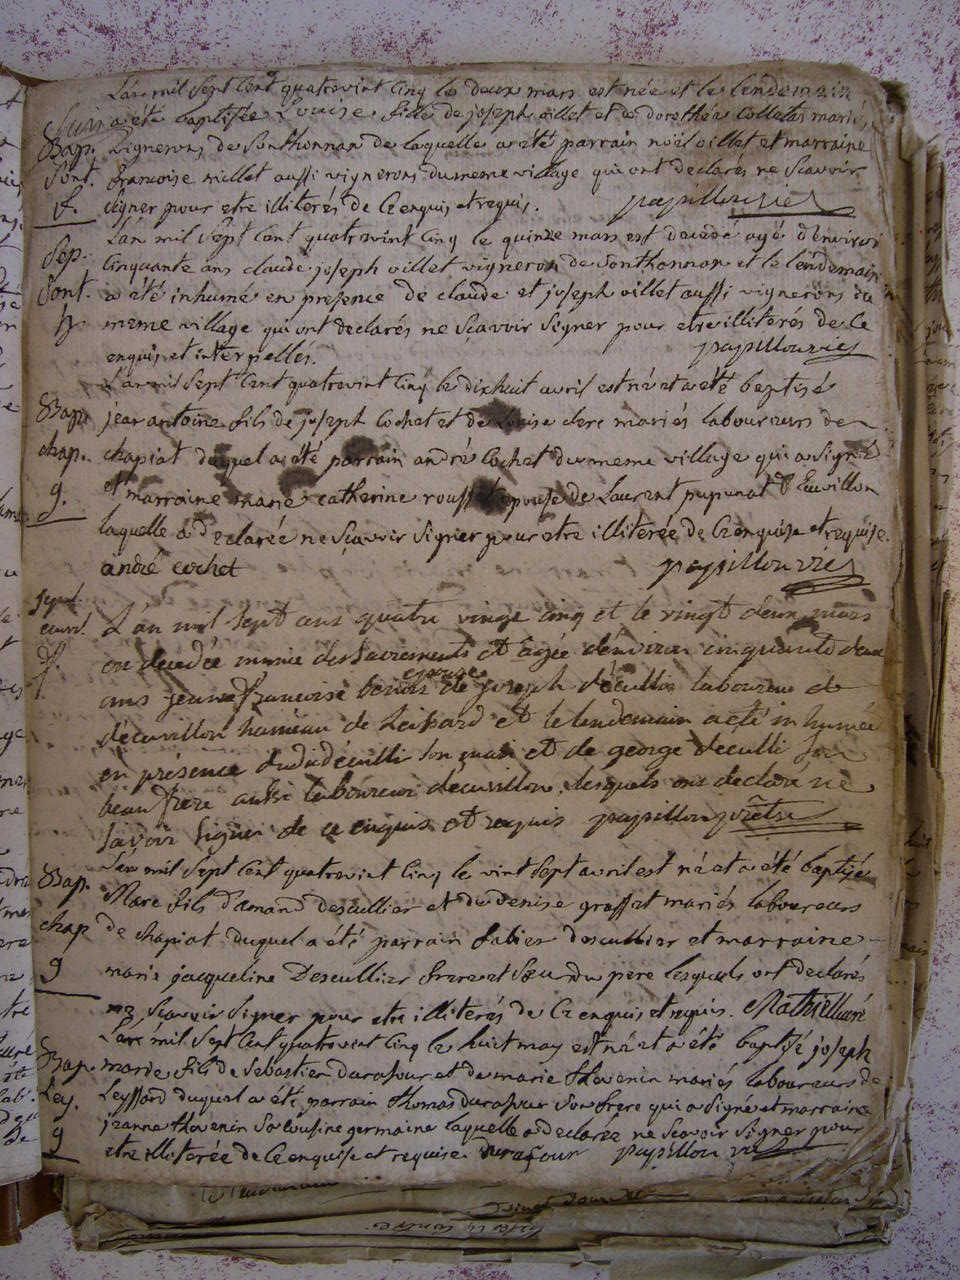 L'an mil sept cent quatrevint cinq le deux mars est née et le lendemain
a été baptisée Louise fille de joseph oillet et de dorothée Colletas mariés
Bap. vignerons de Sonthonnax de laquelle a été parrain noël oillet et marraine
Sont. francoise millet aussi vignerons du meme village qui ont declarés ne Scavoir
f. signer pour etre illiterés de Ce enquis et requis. papillon vic
L'an mil Sept Cent quatrevint Cinq le quinze mars est decedé agé d'Environ
Sep. Cinquante ans claude joseph oillet vigneron de Sonthonnax et le lendemain
Sont. a été inhumé en presence de claude et joseph oillet aussi vignerons du
h. meme village qui ont declarés ne Sçavoir Signer pour etre illiterés de Ce
enquis et interpellés. papillon vic
L'an mil Sept Cent quatrevint Cinq le dixhuit avril est né et a été baptisé
Bap. jean antoine fils de joseph Cochet et de Louise clerc mariés laboureurs de
chap. chapiat duquel a été parrain andré Cochet du meme village qui a Signé
g. et marraine marie catherine rousset epouse de Laurent pupunat d'Ecuvillon
laquelle a declarée ne Sçavoir Signer pour etre illiterée de Ce enquise et requise.
andré cochet papillon vic
Sepul.
ecuvil. L'an mil sept cens quatre vingt cinq et le vingt deux mars
f. est decedée munie des sacrements et agée d'environ cinquante deux
ans jeanne francoise benoit epouse de joseph décuilli laboureur de
décuvillon hameau de Leissard et le lendemain a eté inhumée
en présence dudit décuilli son mari et de george decuilli son
beau frere aussi laboureur décuvillon, lesquels ont declaré ne
savoir signer de ce enquis et requis papillon prêtre
L'an mil Sept Cent quatrevint Cinq le vint Sept avril est né et a été baptisé
Bap. Marc fils d'amand descullier et de denise graffet mariés laboureurs
chap de chapiat duquel a été parrain fabien descullier et marraine
g marie jacqueline Descullier frere et Sœur du pere lesquels ont declarés
ne Scavoir Signer pour etre illiterés de Ce enquis et requis.
L'an mil Sept Cent quatrevint Cinq le huit may est né et a été baptisé joseph
Bap. marie fils de Sebastien durafour et de marie thevenin mariés laboureurs de
Ley. Leyssard duquel a été parrain thomas durafour Son frere qui a Signé et marraine
g jeanne thevenin Sa Cousine germaine laquelle a declarée ne Scavoir Signer pour
etre illiterée de Ce enquise et requise durafour papillon vic